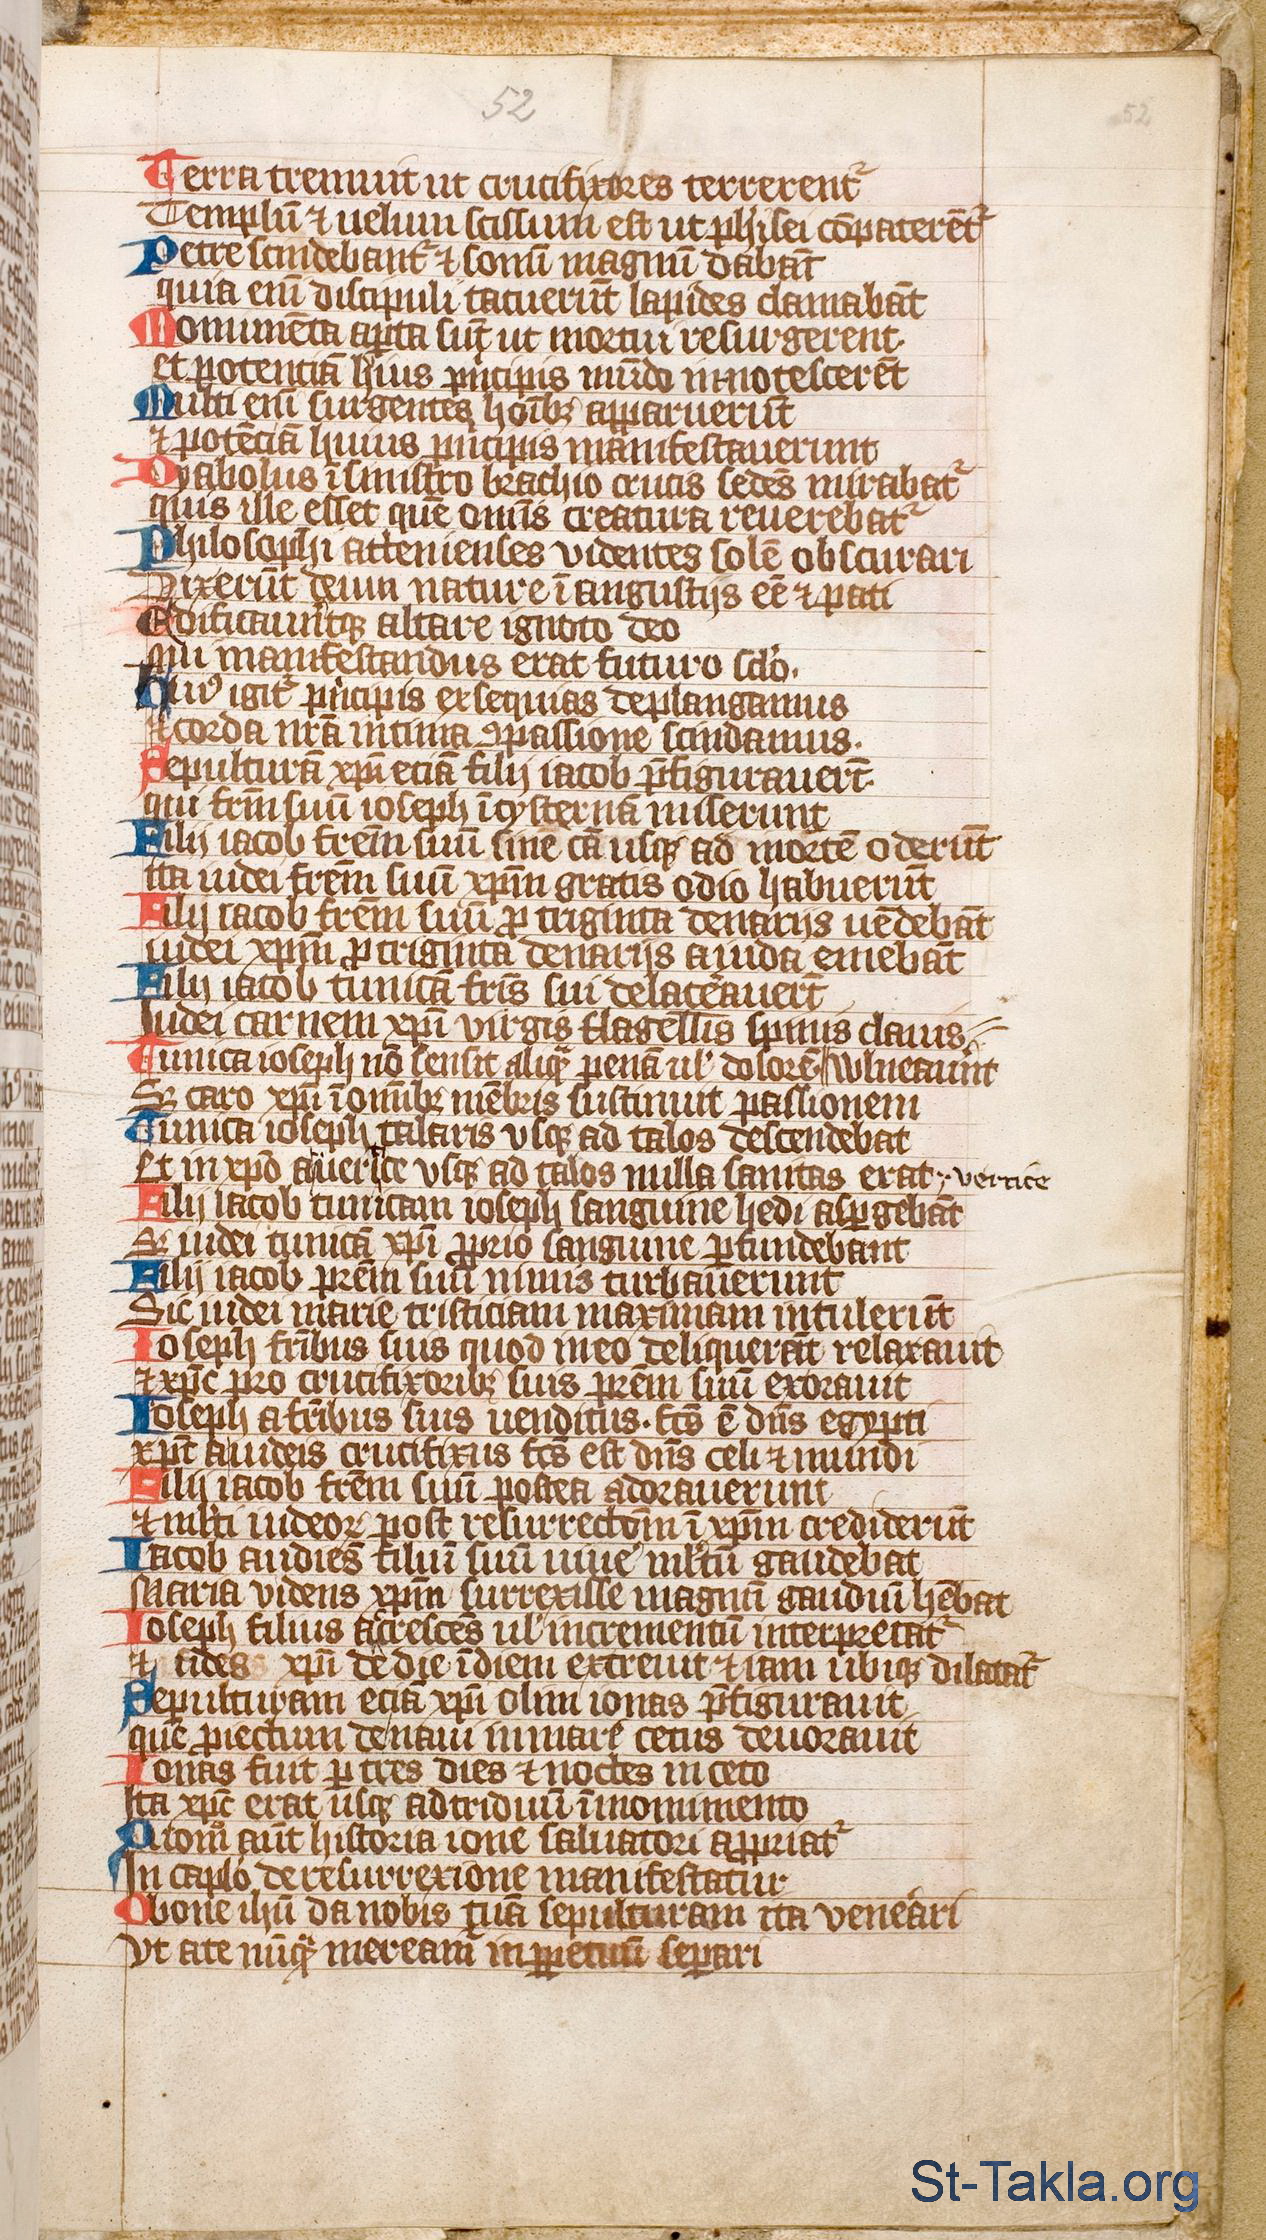 52
52
Terra tremuit ut crucifixores terrerent᷑
Templū ⁊ uelum scissum est ut ph̄isei cōpaterēt᷑
Petre scindebant᷑ ⁊ sonū magnū dabāt
quia enī discipuli tacuerūt lapides clamabāt
Monumēta apta sūt ut mortui resurgerent
et potenciā hꝰius pͥncipis mūdo innotescerēt
Multi enī surgentes hoībꝫ apparuerūt
⁊ potēciā huius pͥncipis manifestauerunt
Dyabolus ī sinistro brachio crucis sedēs mirabat᷑
quis ille esset quē omīs creatura reuerebat᷑
Philosophi attenienses videntes solē obscurari
Dixerūt deum nature ī angustijs eē ⁊ pati
Edificauer̄tqꝫ altare ignoto deo
qui manifestandus erat futuro sclo.
Huiꝰ igit᷑ pͥncipis exsequias deplangamus
⁊ corda nrā intima ꝯpassione scindamus.
Sepulturā xpī eciā filij iacob p̄figurauert̄
qui frm̄ suū ioseph ī cysternā miserunt
Filij iacob frēm suū sine cā usqꝫ ad mortē oderūt
ita iudei frēm suū xpm̄ gratis odio habuerūt
Filij iacob frēm suū ꝓ triginta denarijs uēdebāt
iudei xpm̄ ꝓ triginta denarijs a iuda emebāt
Filij iacob tunicā fris̄ sui delac̄eauert̄
Judei carnem xpī virgis flagell̄is spinis clauis
Tunica ioseph nō sensit aliqͣ penā ul̓ dolorē wlnerauer̄nt
Sꝫ caro xpī ī omībꝫ mēbris sustinuit passionem
Tunica ioseph talaris vsqꝫ ad talos descendebat
Et in xpō a uertice vsqꝫ ad talos nulla sanitas erat vertice
Filij iacob tunicam ioseph sanguine hedi aspgebāt
Sꝫ iudei tunicā xpī ꝓprio sanguine ꝑfundebant
Filij iacob prēm suū nimis turbauerunt
Sic iudei marie tristiciam maximam intulerūt
Ioseph fribus suis quod in eo deliquerāt relaxauit
⁊ xpc̄ pro crucifixoribꝫ suis prēm suū exorauit
Ioseph a fribus suis uenditus. fcs̄ ē dn̄s egypti
xpc̄ a iudeis crucifixus fcs̄ est dn̄s celi ⁊ mundi
Filij iacob frēm suū postea adorauerunt
⁊ ml̓ti iudeoꝝ post resurrectōm ī xpm̄ crediderūt
Iacob audiēs filiū suū uiue̓ ml̓tū gaudebat
Maria videns xpm̄ surrexisse magnū gaudiū hēbat
Ioseph filius ac̄rescēs ul̓ incrementū interpretat᷑
⁊ fides xpī de die ī diem excreuit ⁊ iam ubiqꝫ dilatat᷑
Sepulturam eciā xpī olim ionas p̄figurauit
quē ꝓiectum de naui in mare cetus deuorauit
Ionas fuit ꝑ tres dies ⁊ noctes in ceto
Ita xpc̄ erat usqꝫ ad triduū ī monumento
Quom̊ aūt historia ione saluatori appriat᷑
In caplo de resurrexione manifestatur
O bone ihū da nobis tuā sepulturam ita veneari
Vt a te nūqͣ meream̄ in ꝑpetuū separi
St-Takla.org